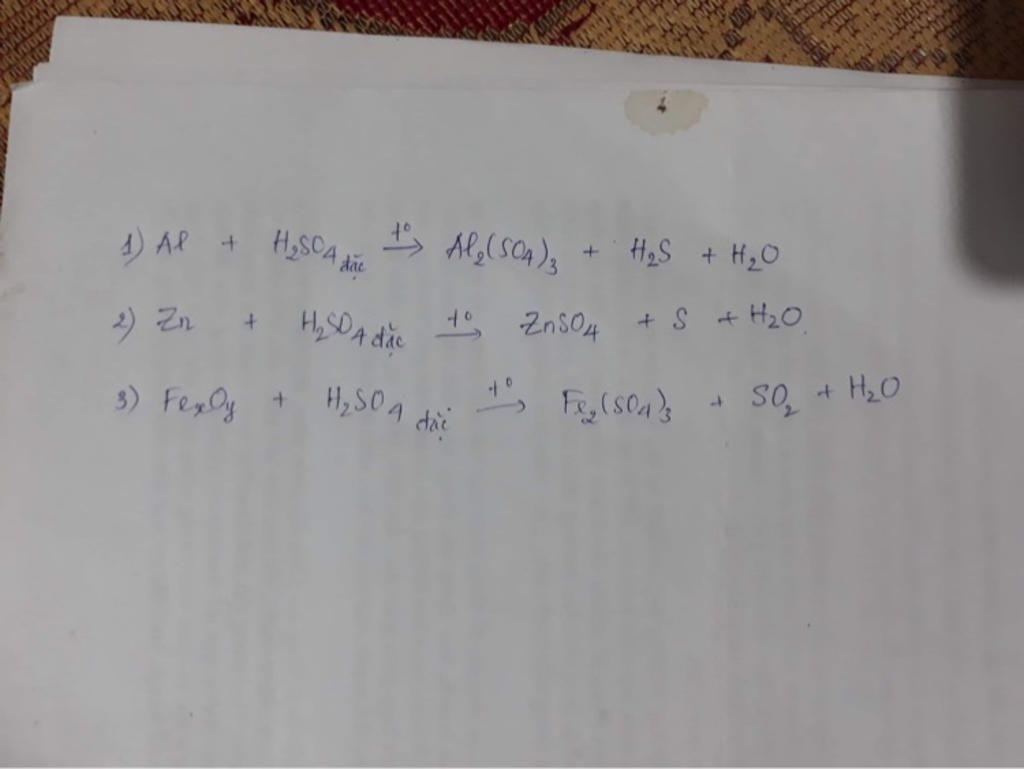 1) Al + H₂SO₄ đặc t° → Al₂(SO₄)₃ + H₂S + H₂O
2) Zn + H₂SO₄ đặc t° → ZnSO₄ + S + H₂O.
3) FeₓOᵧ + H₂SO₄ đặc t° → Fe₂(SO₄)₃ + SO₂ + H₂O